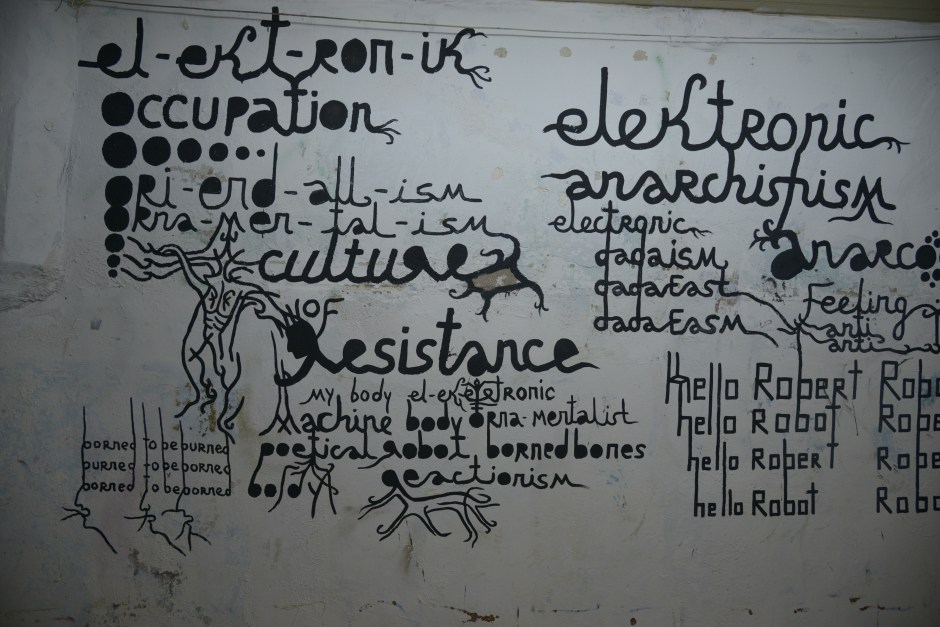 el-ekt-ron-ik
occupation
ori-end-all-ism
orna-men-tal-ism
culture
of
Resistance
my body el-ek tronic
Machine body orna-mentalist
poetical robot bornedbones
body reactionism
borned to be burned
burned to be borned
borned to be borned
elektronic
anarchinism
electronic
dadaism
dadaEast
dadaEasm
anarco
Feeling
anti
anti
hello Robert Robe
hello Robot Robo
hello Robert Robe
hello Robot Robo